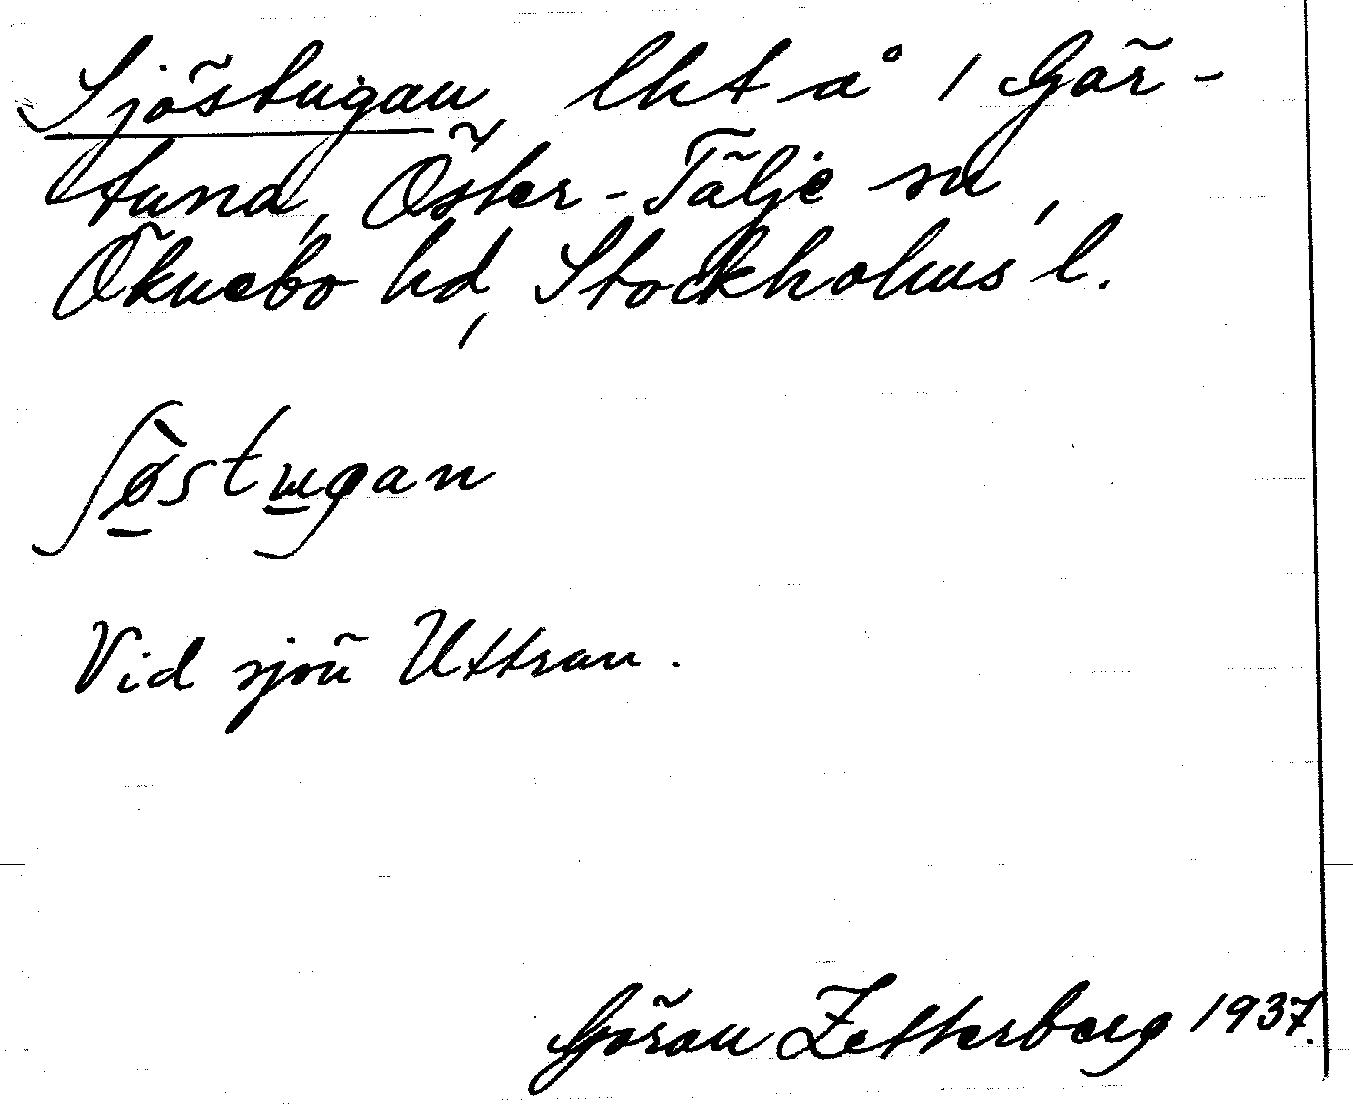 Sjöstugan, lht å 1 Gär-
tuna, Öster-Tälje sn,
Öknebo hd, Stockholms l.
ʃø̀stɯgan
Vid sjön Uttran.
Göran Zetterberg 1937.